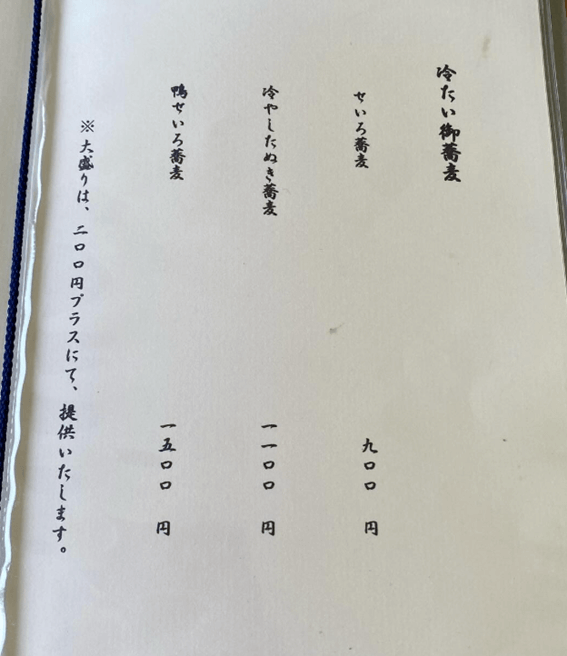 冷たい御蕎麦
せいろ蕎麦
九〇〇円
冷やしたぬき蕎麦
一一〇〇円
鴨せいろ蕎麦
一五〇〇円
※大盛りは、二〇〇円プラスにて、提供いたします。